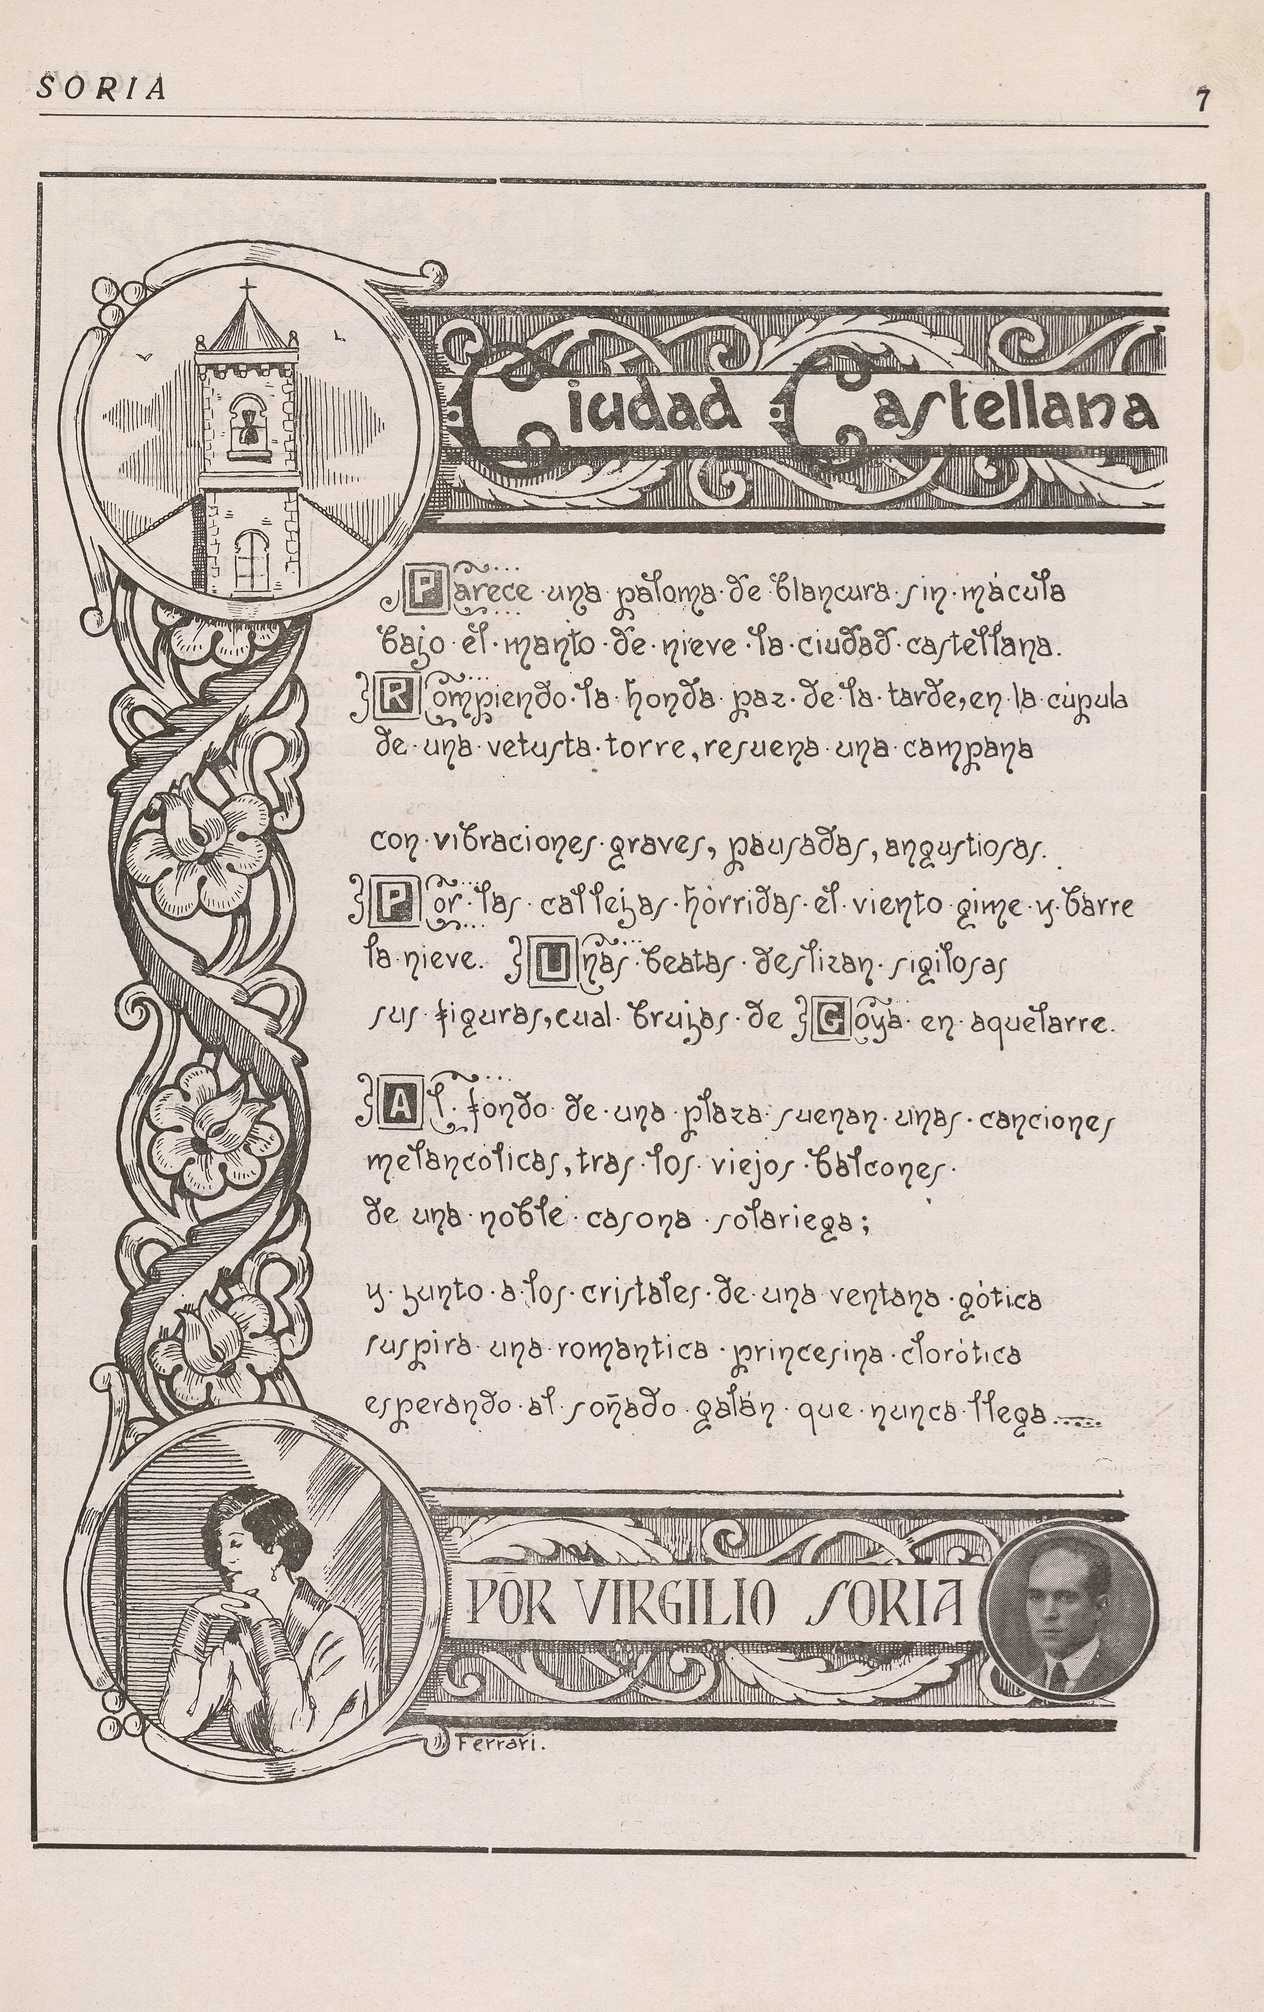 SORIA
7
Ciudad Castellana
Parece una paloma de blancura sin mácula
bajo el manto de nieve la ciudad castellana.
Rompiendo la honda paz de la tarde, en la cúpula
de una vetusta torre, resuena una campana
con vibraciones graves, pausadas, angustiosas.
Por las callejas hórridas el viento gime y barre
la nieve. Unas beatas deslizan sigilosas
sus figuras, cual brujas de Goya en aquelarre.
Al fondo de una plaza suenan unas canciones
melancólicas, tras los viejos balcones
de una noble casona solariega;
y junto a los cristales de una ventana gótica
suspira una romantica princesina clorótica
esperando al soñado galán que nunca llega.....
POR VIRGILIO SORIA
Ferrari.